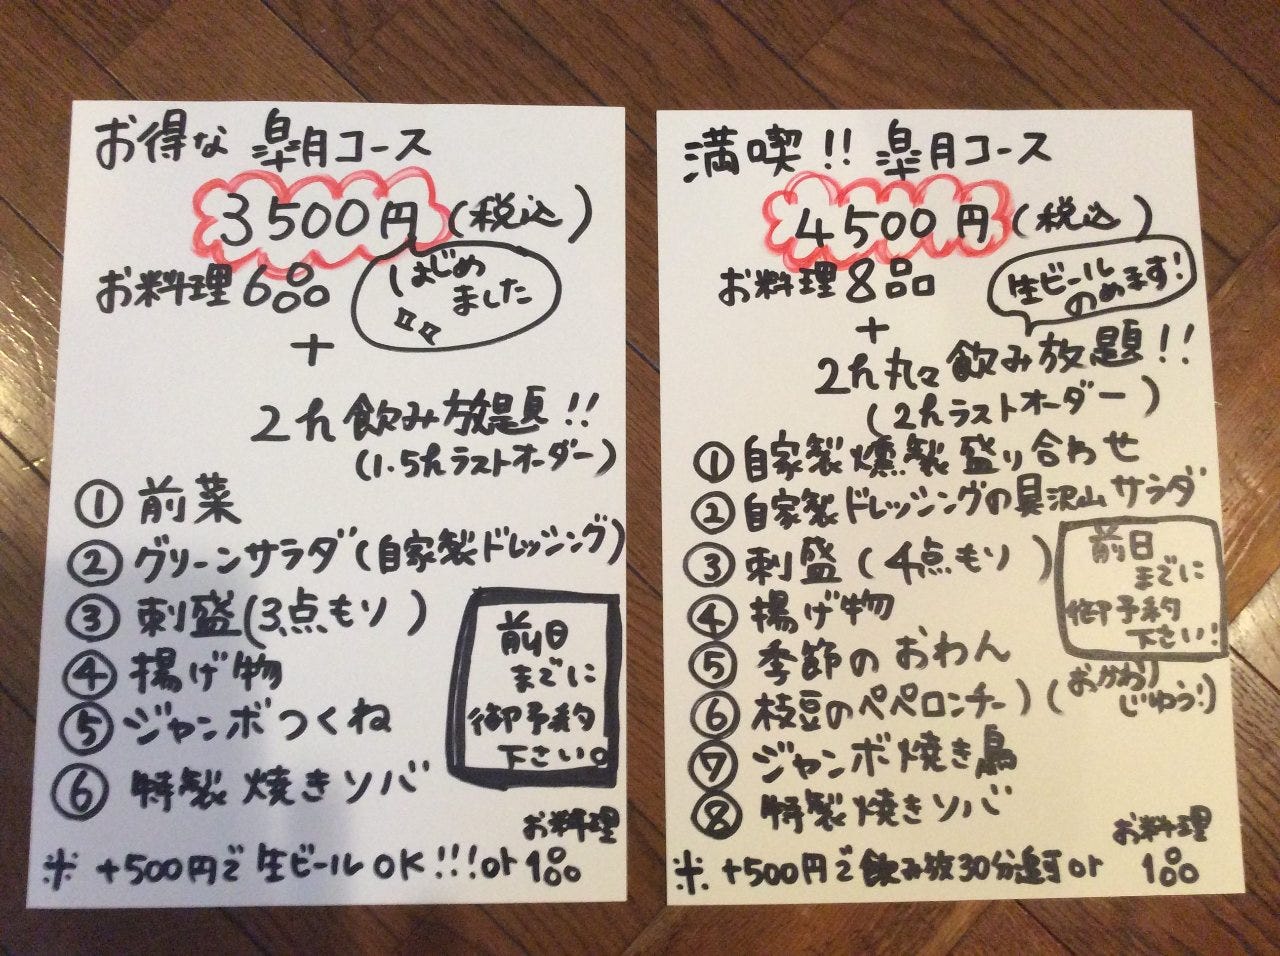 お得な 皐月コース
3500円(税込)
お料理6品
はじめ
ました
+
2h飲み放題!!
(1.5hラストオーダー)
①前菜
②グリーンサラダ(自家製ドレッシング)
③刺盛(3点もり)
④揚げ物
⑤ジャンボつくね
⑥特製焼きソバ
前日
までに
御予約
下さい。
お料理
※+500円で生ビールOK!!!or1品
満喫!! 皐月コース
4500円(税込)
お料理8品
生ビール
のめます!
+
2h丸々飲み放題!!
(2hラストオーダー)
①自家製燻製盛り合わせ
②自家製ドレッシングの具沢山サラダ
③刺盛(4点もり)
④揚げ物
⑤季節のおわん
⑥枝豆のペペロンチーノ(おかわり
じゆう!)
⑦ジャンボ焼き鳥
⑧特製焼きソバ
前日
までに
御予約
下さい!
お料理
※+500円で飲み放30分追加or 1品